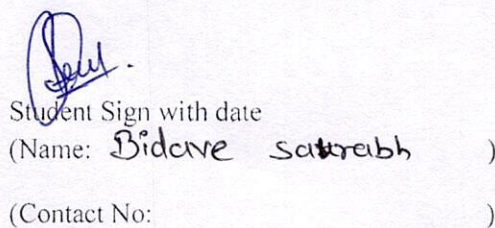 Student Sign with date
(Name: Bidave saurabh )
(Contact No: )